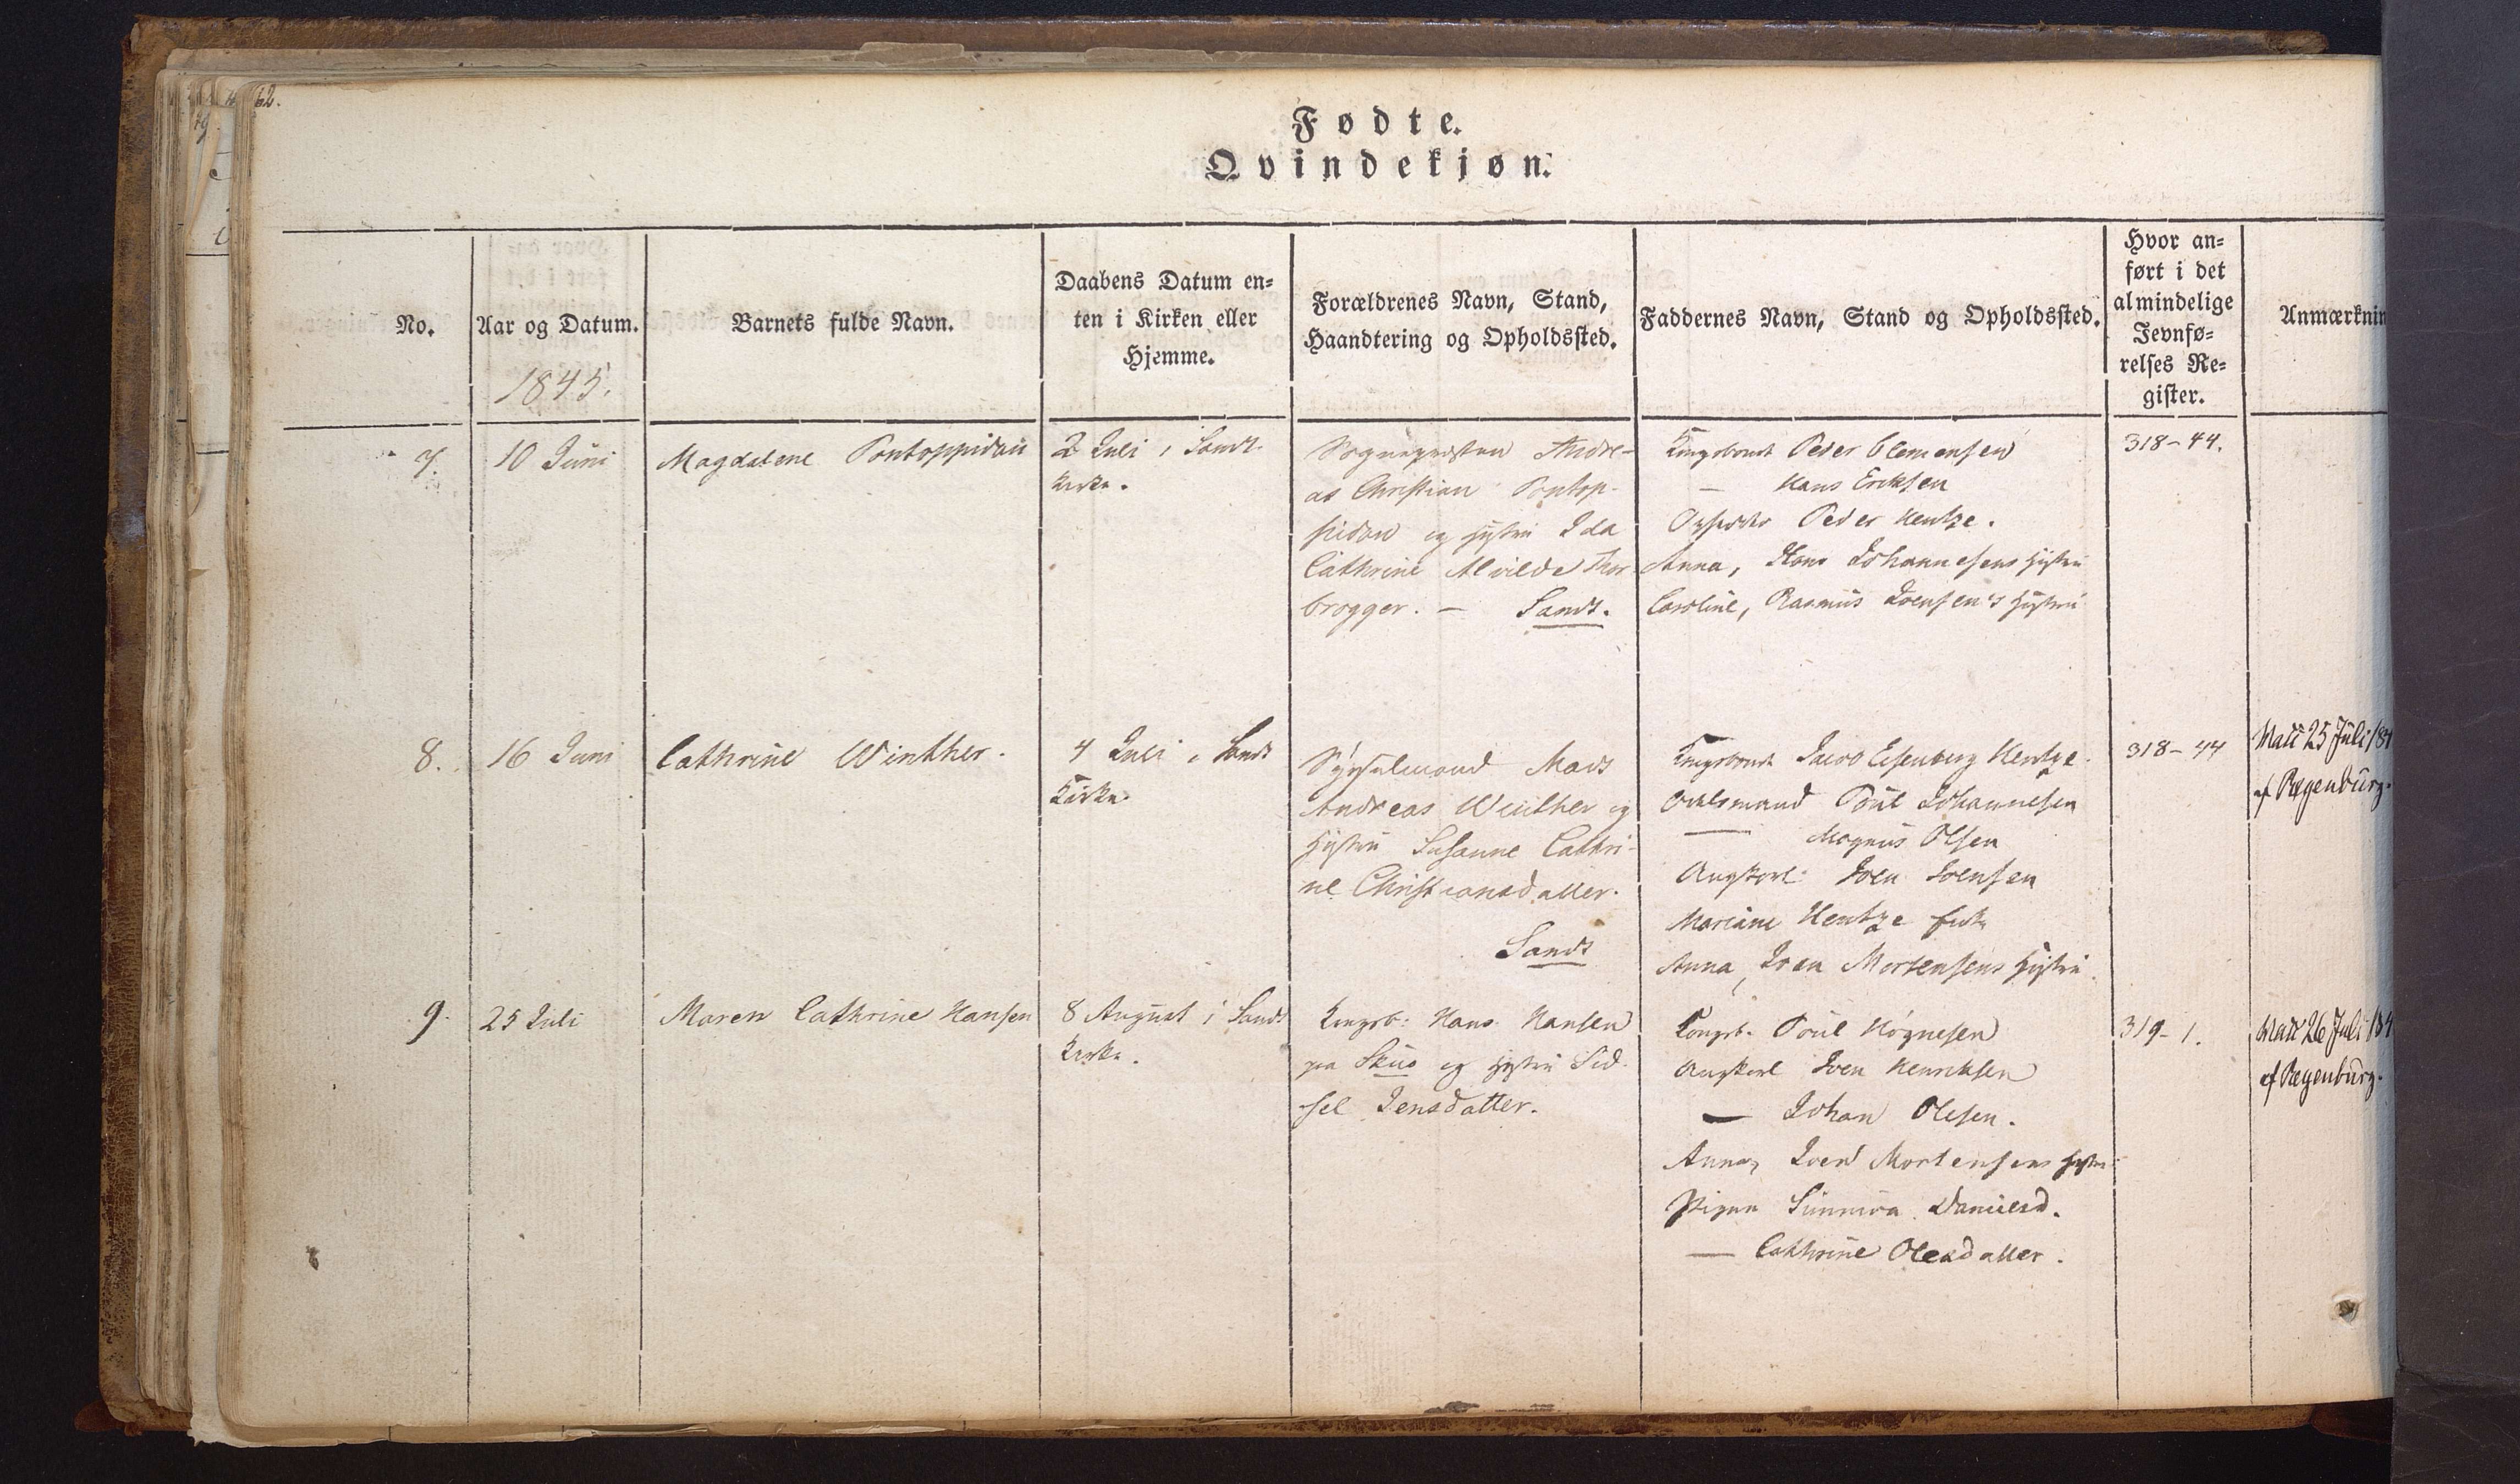 62.
Fødte.
Qvindekjøn.
No.
Aar og Datum.
1845.
Barnets fulde Navn.
Daabens Datum en-
ten i Kirken eller
Hjemme.
Forældrenes Navn, Stand,
Haandtering og Opholdssted.
Faddernes Navn, Stand og Opholdssted.
Hvor an-
ført i det
almindelige
Jevnfø-
relses Re-
gister.
Anmærknin
7.
10 Juni
Magdalene Pontoppidan
2 Juli i Sands
Kirke.
Sognepræsten Andre-
as Christian Pontop-
pidan og Hustru Ida
Cathrine Alvilde Thor
brogger. — Sands.
Kongsbonde Peder Clemensen
— Hans Eriksen
Peder Hentze.
Anna, Hans Johannesens Hustru
Caroline, Rasmus Joensen's Hustru
318-44.
8.
16 Juni
Cathrine Winther.
4 Juli i Sands
Kirke.
Sysselmand Mads
Andreas Winther og
Hustru Susanne Cathri-
ne Christiansdatter.
Sands
Kongsbonde Jacob Eisenberg Hentze.
Odelsmand Poul Johannesen
— Magnus Olsen
Ungkarl Joen Joensen
Mariane Hentze
Anna, Joen Mortensens Hustru.
318-44
Vacc 25 Juli 184
af Regenburg.
9.
25 Juli
Maren Cathrine Hansen
8 August i Sands
Kirke.
Kongsb: Hans Hansen
paa Skuo og Hustru Sid-
sel Jensdatter.
Kongsb. Poul Høgnesen
Ungkarl Joen Henriksen
— Johan Olesen.
Anna, Joen Mortensens Hustru
Pigen Sunniva Danielsd.
— Cathrine Olesdatter.
319-1.
Vacc 26 Juli 184
af Regenburg.